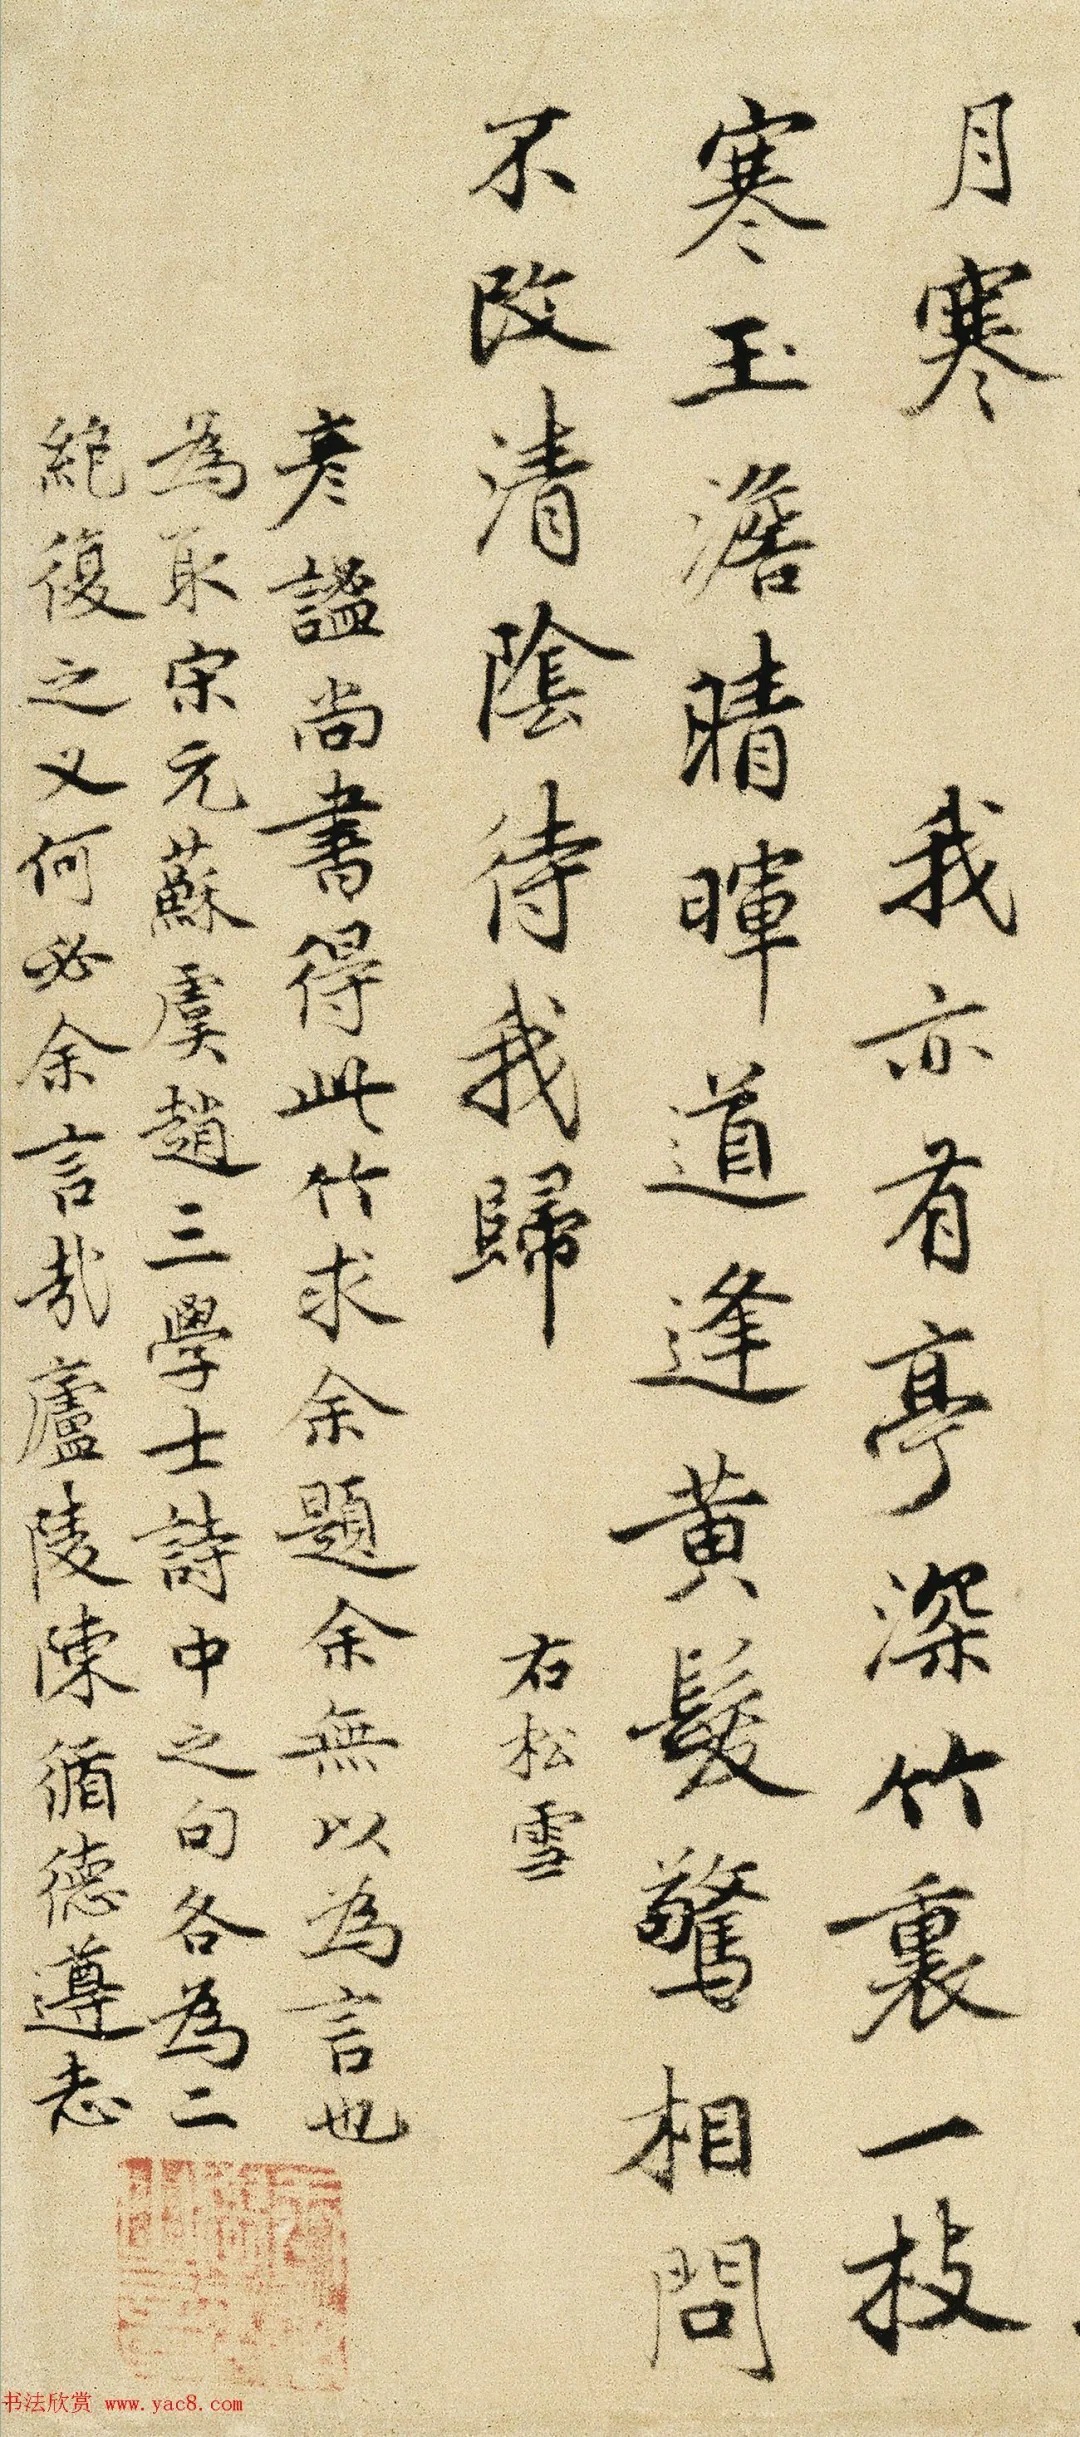 月寒 我亦有亭深竹裏一枝
寒玉澹晴暉道逢黄髮驚相問
不改清陰待我歸 右松雪
彦謐尚書得此竹求余題余無以為言也
為取宋元蘇虞趙三學士詩中之句各為二
絶復之又何必余言哉廬陵陳循德遵志
书法欣赏 www.yac8.com